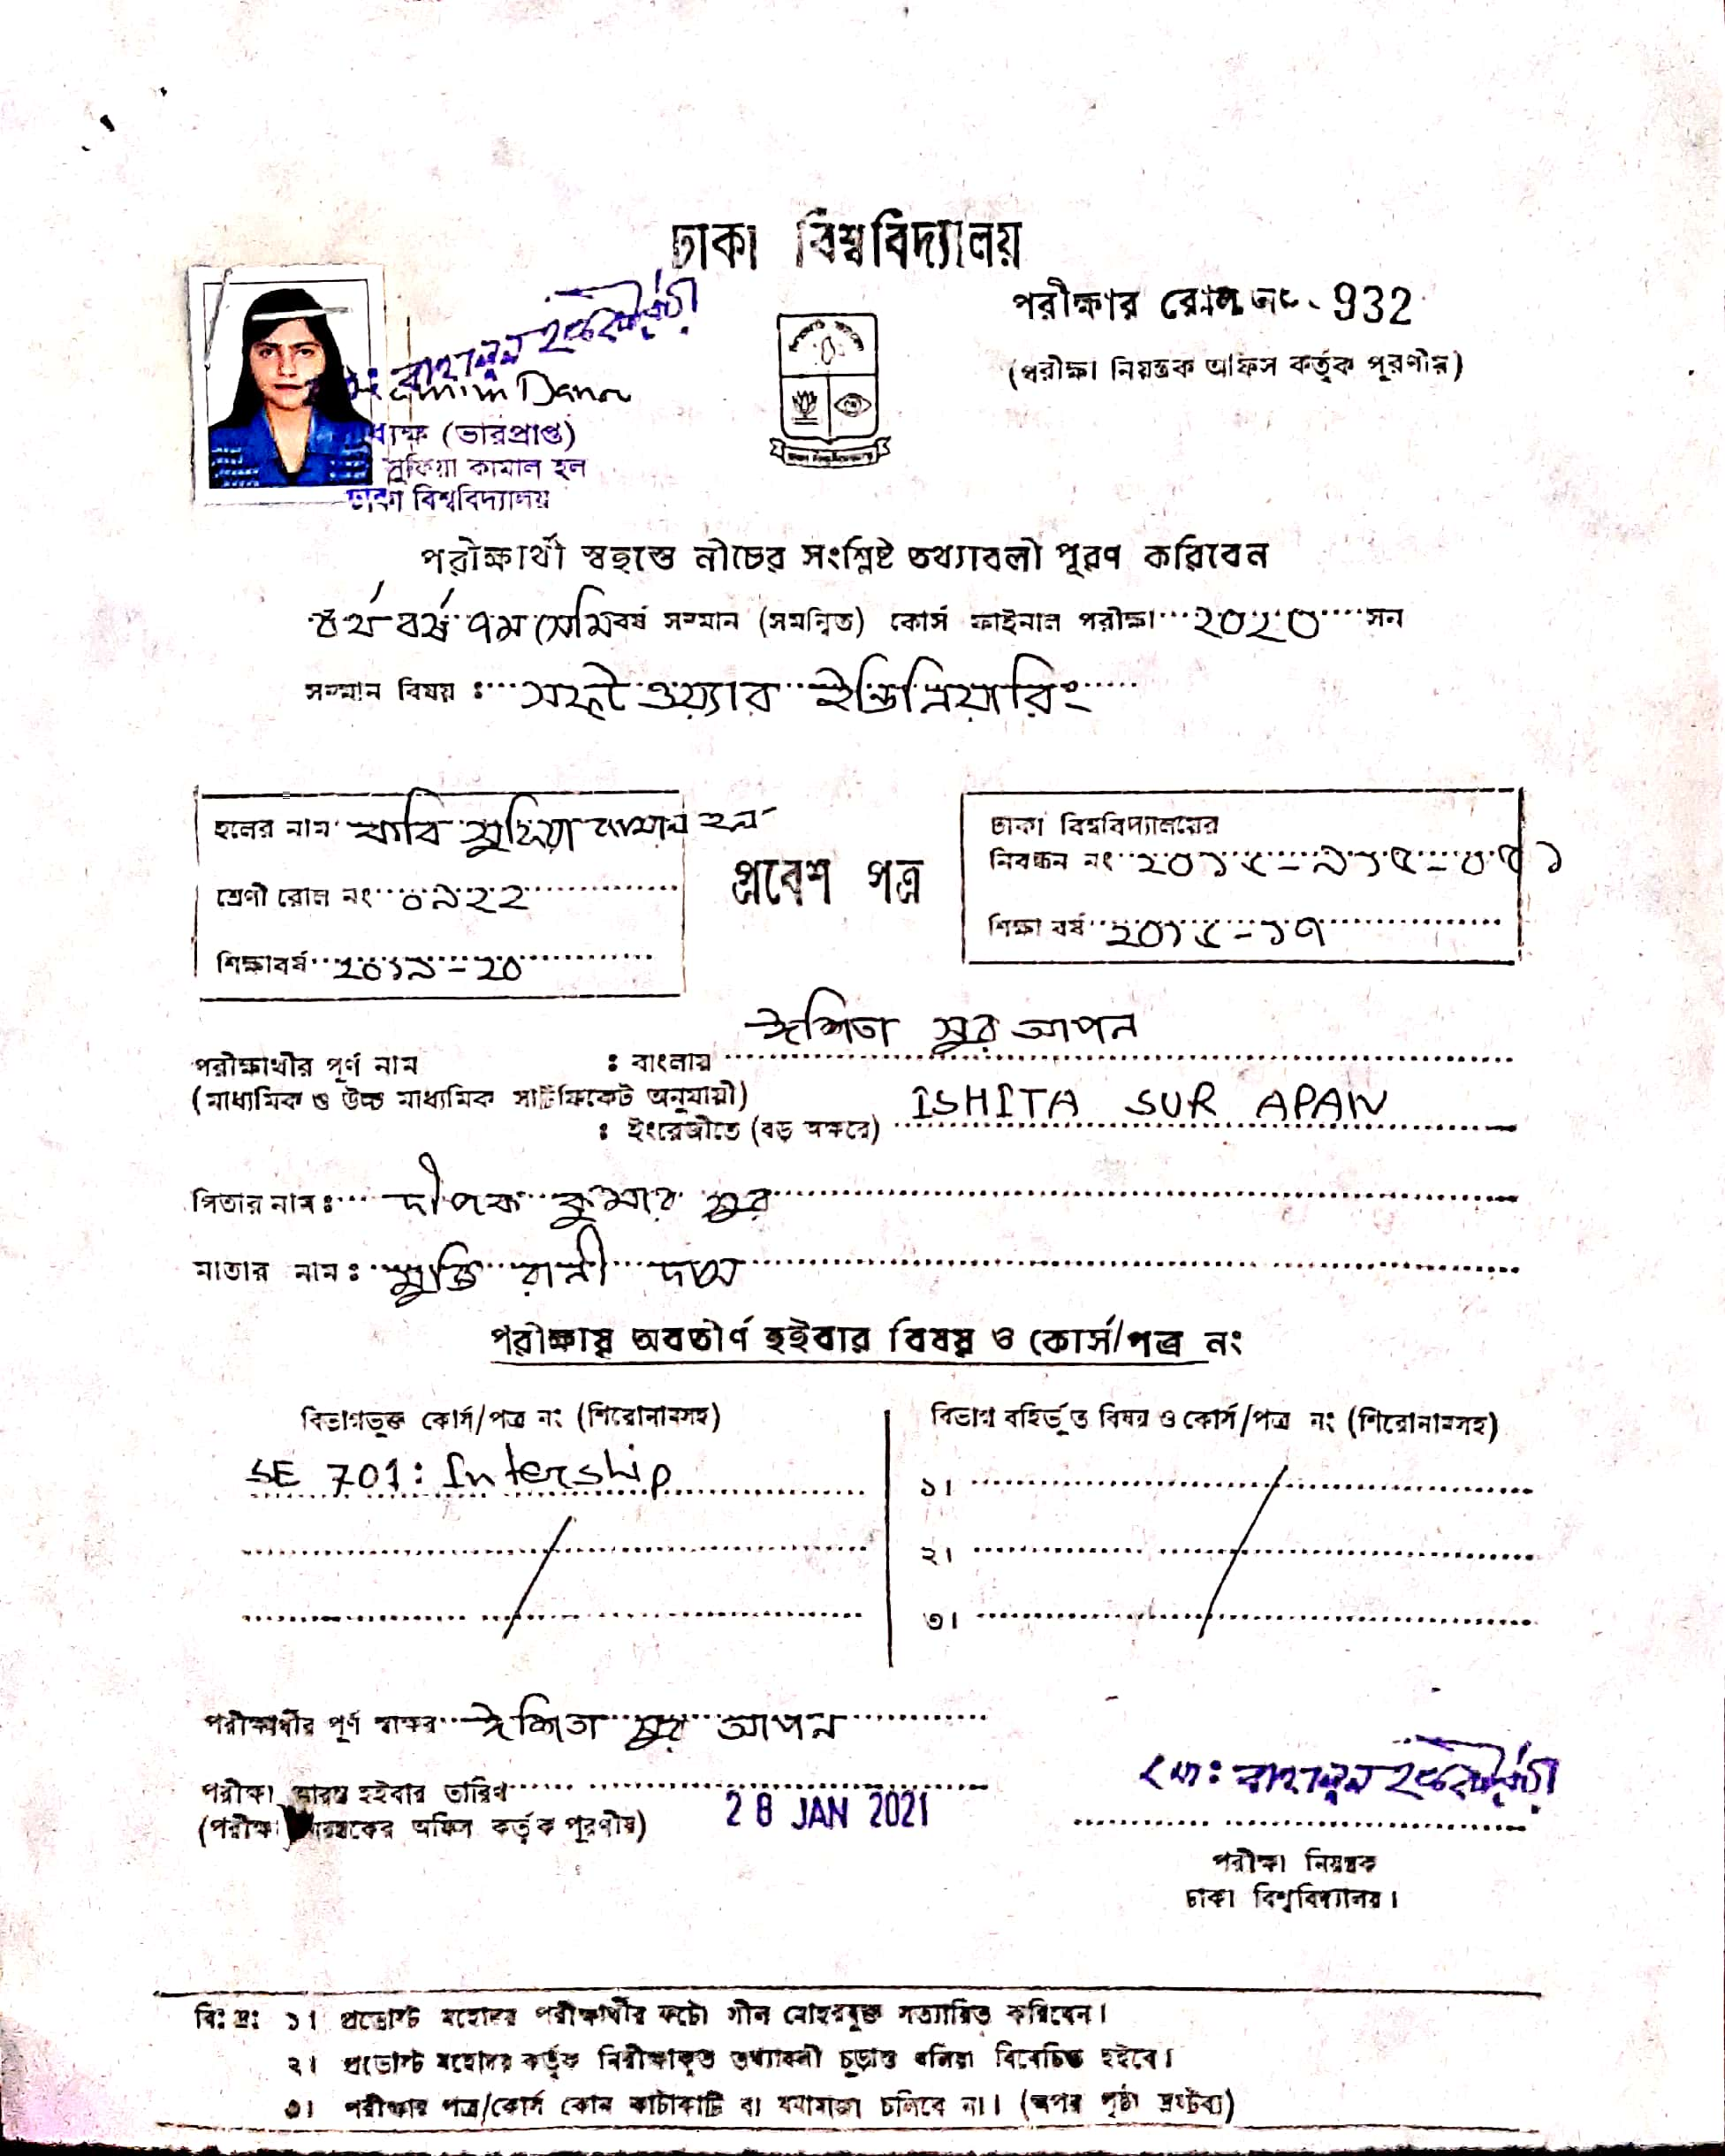 ঢাকা বিশ্ববিদ্যালয়
পরীক্ষার রোল নং. 932
(পরীক্ষা নিয়ন্ত্রক অফিস কর্তৃক পূরণীয়)
(ভারপ্রাপ্ত)
সুফিয়া কামাল হল
ঢাকা বিশ্ববিদ্যালয়
পরীক্ষার্থী স্বহস্তে নীচের সংশ্লিষ্ট তথ্যাবলী পূরণ করিবেন
৪র্থ বর্ষ ৭ম সেমি বর্ষ সম্মান (সমন্বিত) কোর্স ফাইনাল পরীক্ষা ২০২০ সন
সম্মান বিষয় : সফটওয়্যার ইঞ্জিনিয়ারিং
হলের নাম কবি সুফিয়া কামাল হল
শ্রেণী রোল নং ০৯২২
শিক্ষাবর্ষ ২০১৯-২০
প্রবেশ পত্র
ঢাকা বিশ্ববিদ্যালয়ের
নিবন্ধন নং
শিক্ষা বর্ষ
পরীক্ষার্থীর পূর্ণ নাম : বাংলায় ঈশিতা সুর আপন
(মাধ্যমিক ও উচ্চ মাধ্যমিক সার্টিফিকেট অনুযায়ী)
: ইংরেজীতে (বড় অক্ষরে) ISHITA SUR APAN
পিতার নাম: দীপক কুমার সুর
মাতার নাম: মুক্তি রানী দাস
পরীক্ষায় অবতীর্ণ হইবার বিষয় ও কোর্স/পত্র নং
বিভাগভুক্ত কোর্স/পত্র নং (শিরোনামসহ)
SE 701: Intership
বিভাগ বহির্ভূত বিষয় ও কোর্স/পত্র নং (শিরোনামসহ)
১।
২।
৩।
পরীক্ষার্থীর পূর্ণ স্বাক্ষর ঈশিতা সুর আপন
পরীক্ষা আরম্ভ হইবার তারিখ
28 JAN 2021
(পরীক্ষা নিয়ন্ত্রকের অফিস কর্তৃক পূরণীয়)
পরীক্ষা নিয়ন্ত্রক
ঢাকা বিশ্ববিদ্যালয়।
বি: দ্র: ১। প্রভোস্ট মহোদয় পরীক্ষার্থীর ফটো সীল মোহরযুক্ত সত্যায়িত করিবেন।
২। প্রভোস্ট মহোদয় কর্তৃক নিরীক্ষাকৃত তথ্যাবলী চূড়ান্ত বলিয়া বিবেচিত হইবে।
৩। পরীক্ষার পত্র/কোর্স কোন কাটাকাটি বা ঘষামাজা চলিবে না। (অপর পৃষ্ঠা দ্রষ্টব্য)